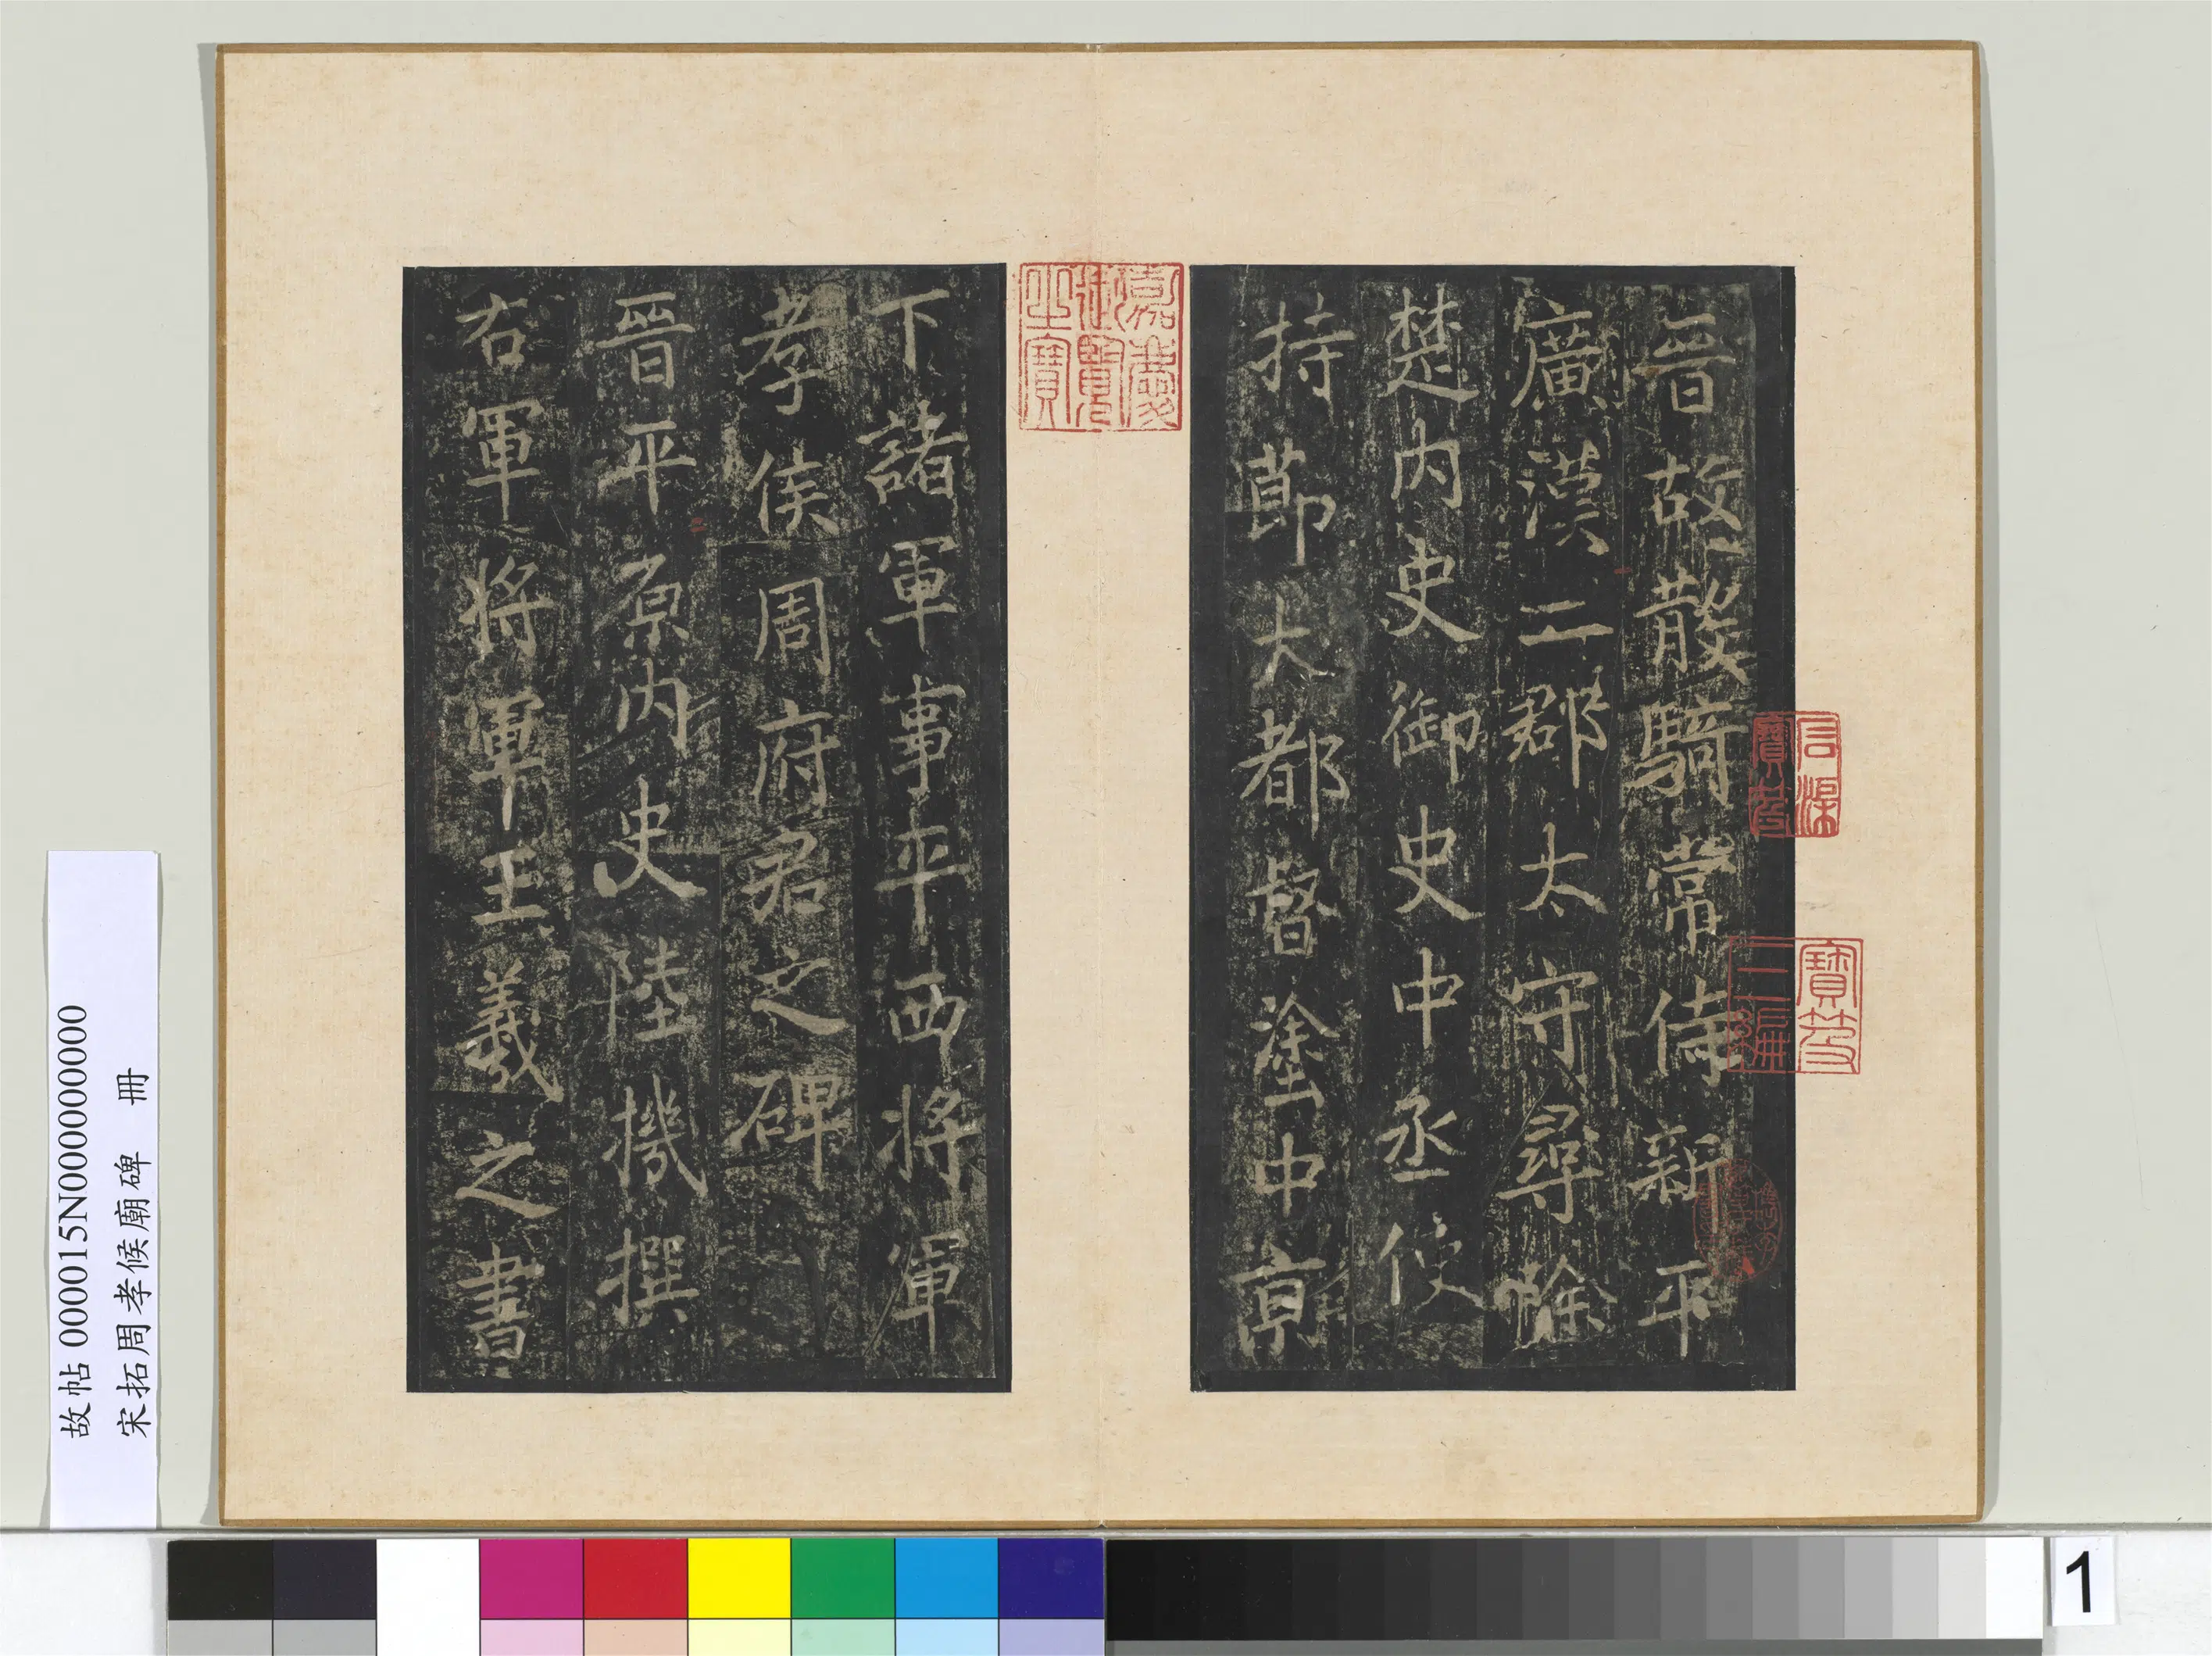 晉故散騎常侍新平
廣漢二郡太守尋除
楚內史御史中丞使
持節大都督塗中京
下諸軍事平西將軍
孝侯周府君之碑
晉平原內史陸機撰
右軍將軍王羲之書
嘉慶御覽之寶
石渠寶笈
寶笈三編
故帖 000015N000000000
宋拓周孝候廟碑 冊
1